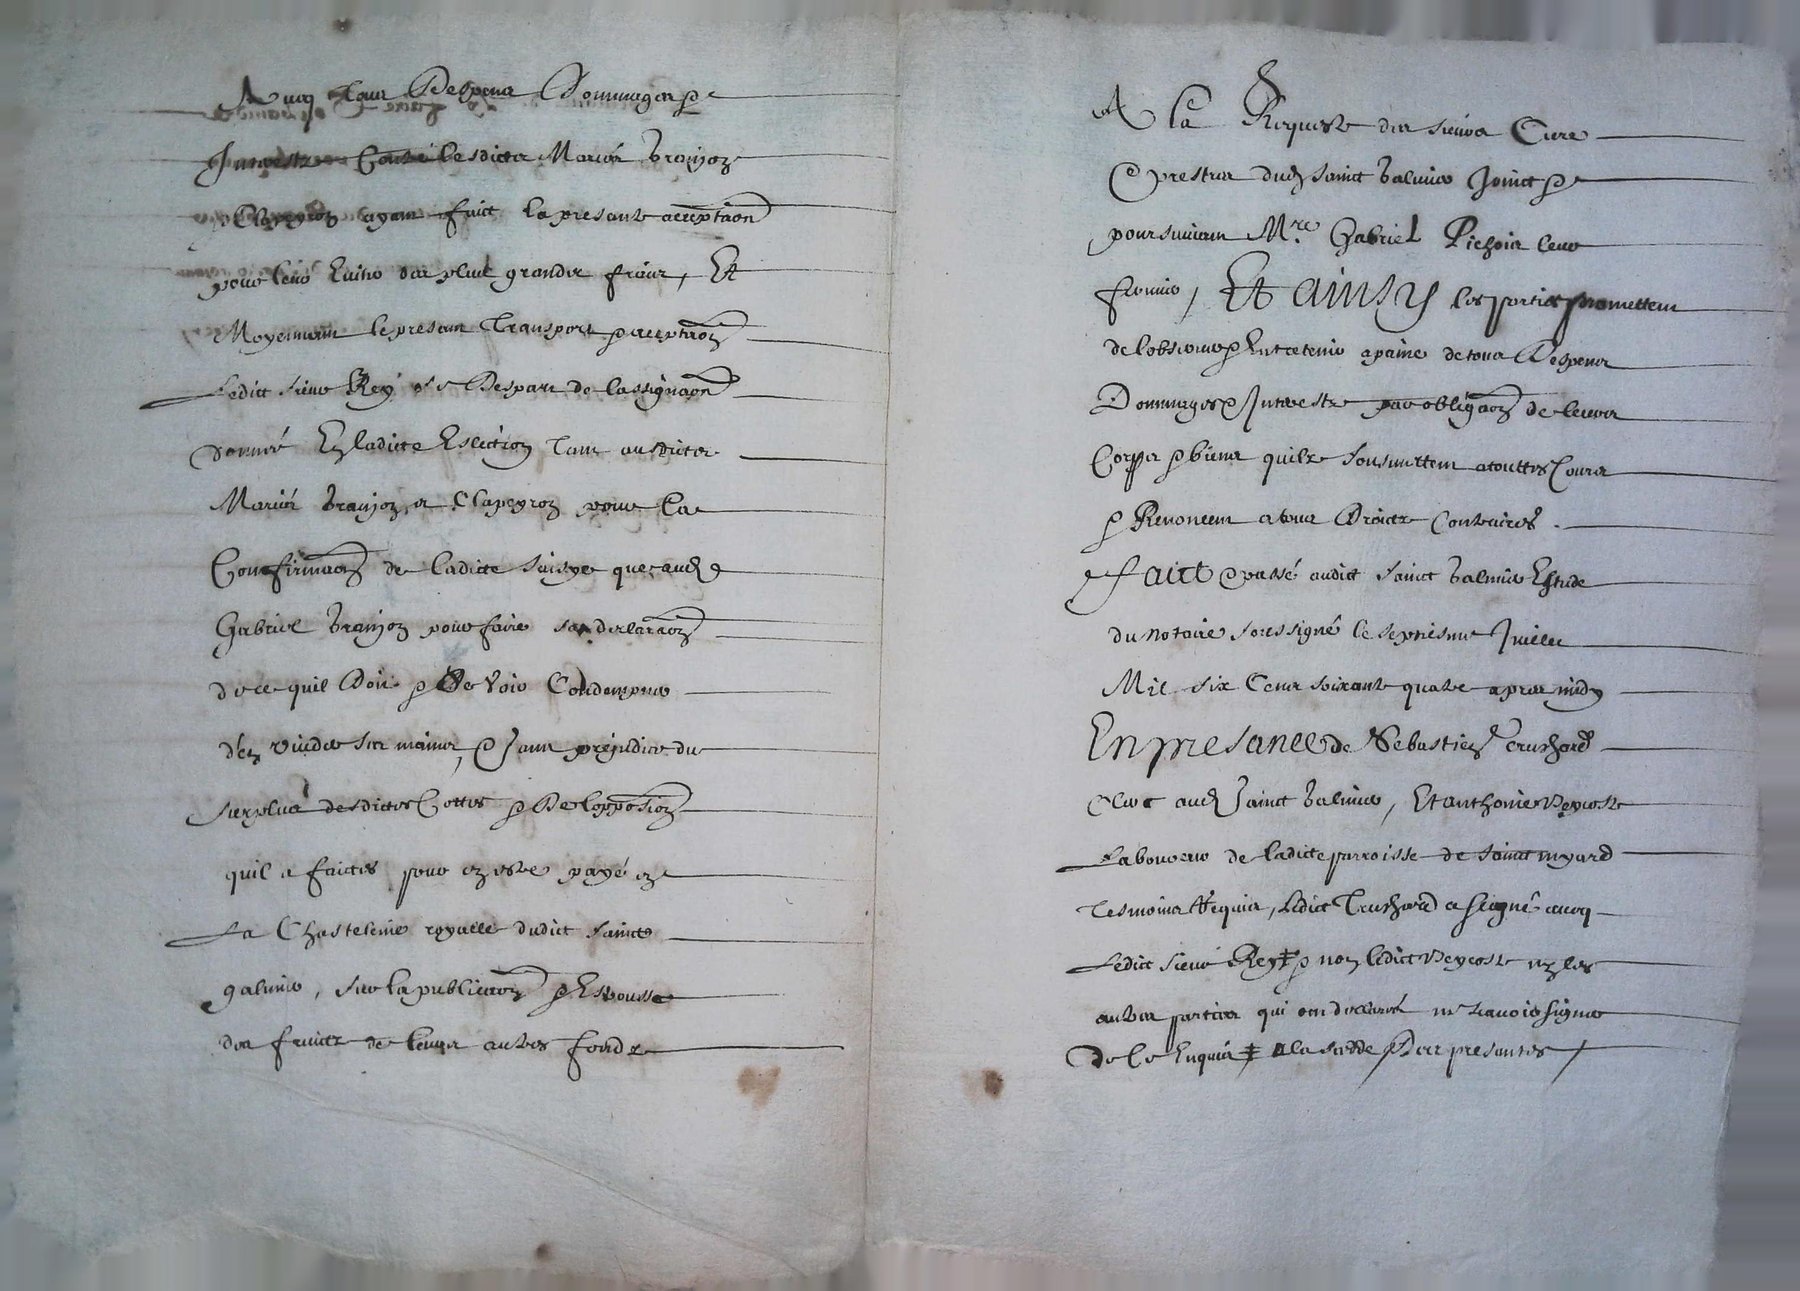 Avecq tous Despens Dommages &
Interestz Contre lesdictes Mariés Branjon
& Clapeyron ayant faict la presante acceptaon
pour leur Esviter des plus grandes fraiz, Et
Moyennant le presant Transport & acceptaon
Ledict sieur Rey se Despart de lassignaon
donneé En ladicte Eslection Tant ausdictes
Mariés Branjon, et Clapeyron pour la
Confirmaon de ladicte saisye que aud
Gabriel Branjon pour faire sa declaraon
de ce quil Doit & se Voir Condempner
den vuider ses mains, & sans prejudice du
surplus desdictes Cottes & De lopposion
quil a faictes pour en estre payé en
La Chastelenie royalle dudict sainct
galmier, sur la publicaon & Estrousse
des fruictz de leurs autres fondz
A la Requeste des sieurs Curé
& prestres dud sainct galmier Joinct &
poursuivant Mre Gabriel Pichois leur
fermier, Et ainsy les parties promettent
de lobserver & Entretenir a paine de tous Despens
Dommages & Interestz par obligaon de leurs
Corps & biens quilz sousmettent a touttes Cours
& Renoncent a tous Droictz Contraires.
faict & passé audict sainct galmier Estude
du notaire soussigné le septiesme Juillet
Mil six Cens soixante quatre apres midy
En presance de Sebastien Truchard
Clerc aud sainct galmier, Et anthoine
Laboureur de ladicte parroisse de sainct myard
Tesmoins Requis, Ledict Truchard a signé avecq
Ledict sieur Rey & non ledict ny les
autres parties qui ont declaré ne scavoir signer
de ce Enquis a la des presantes